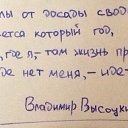 лы от досады свод
ется который год,
, где я, - там жизнь пр
де нет меня, - иде
Владимир Высоцки